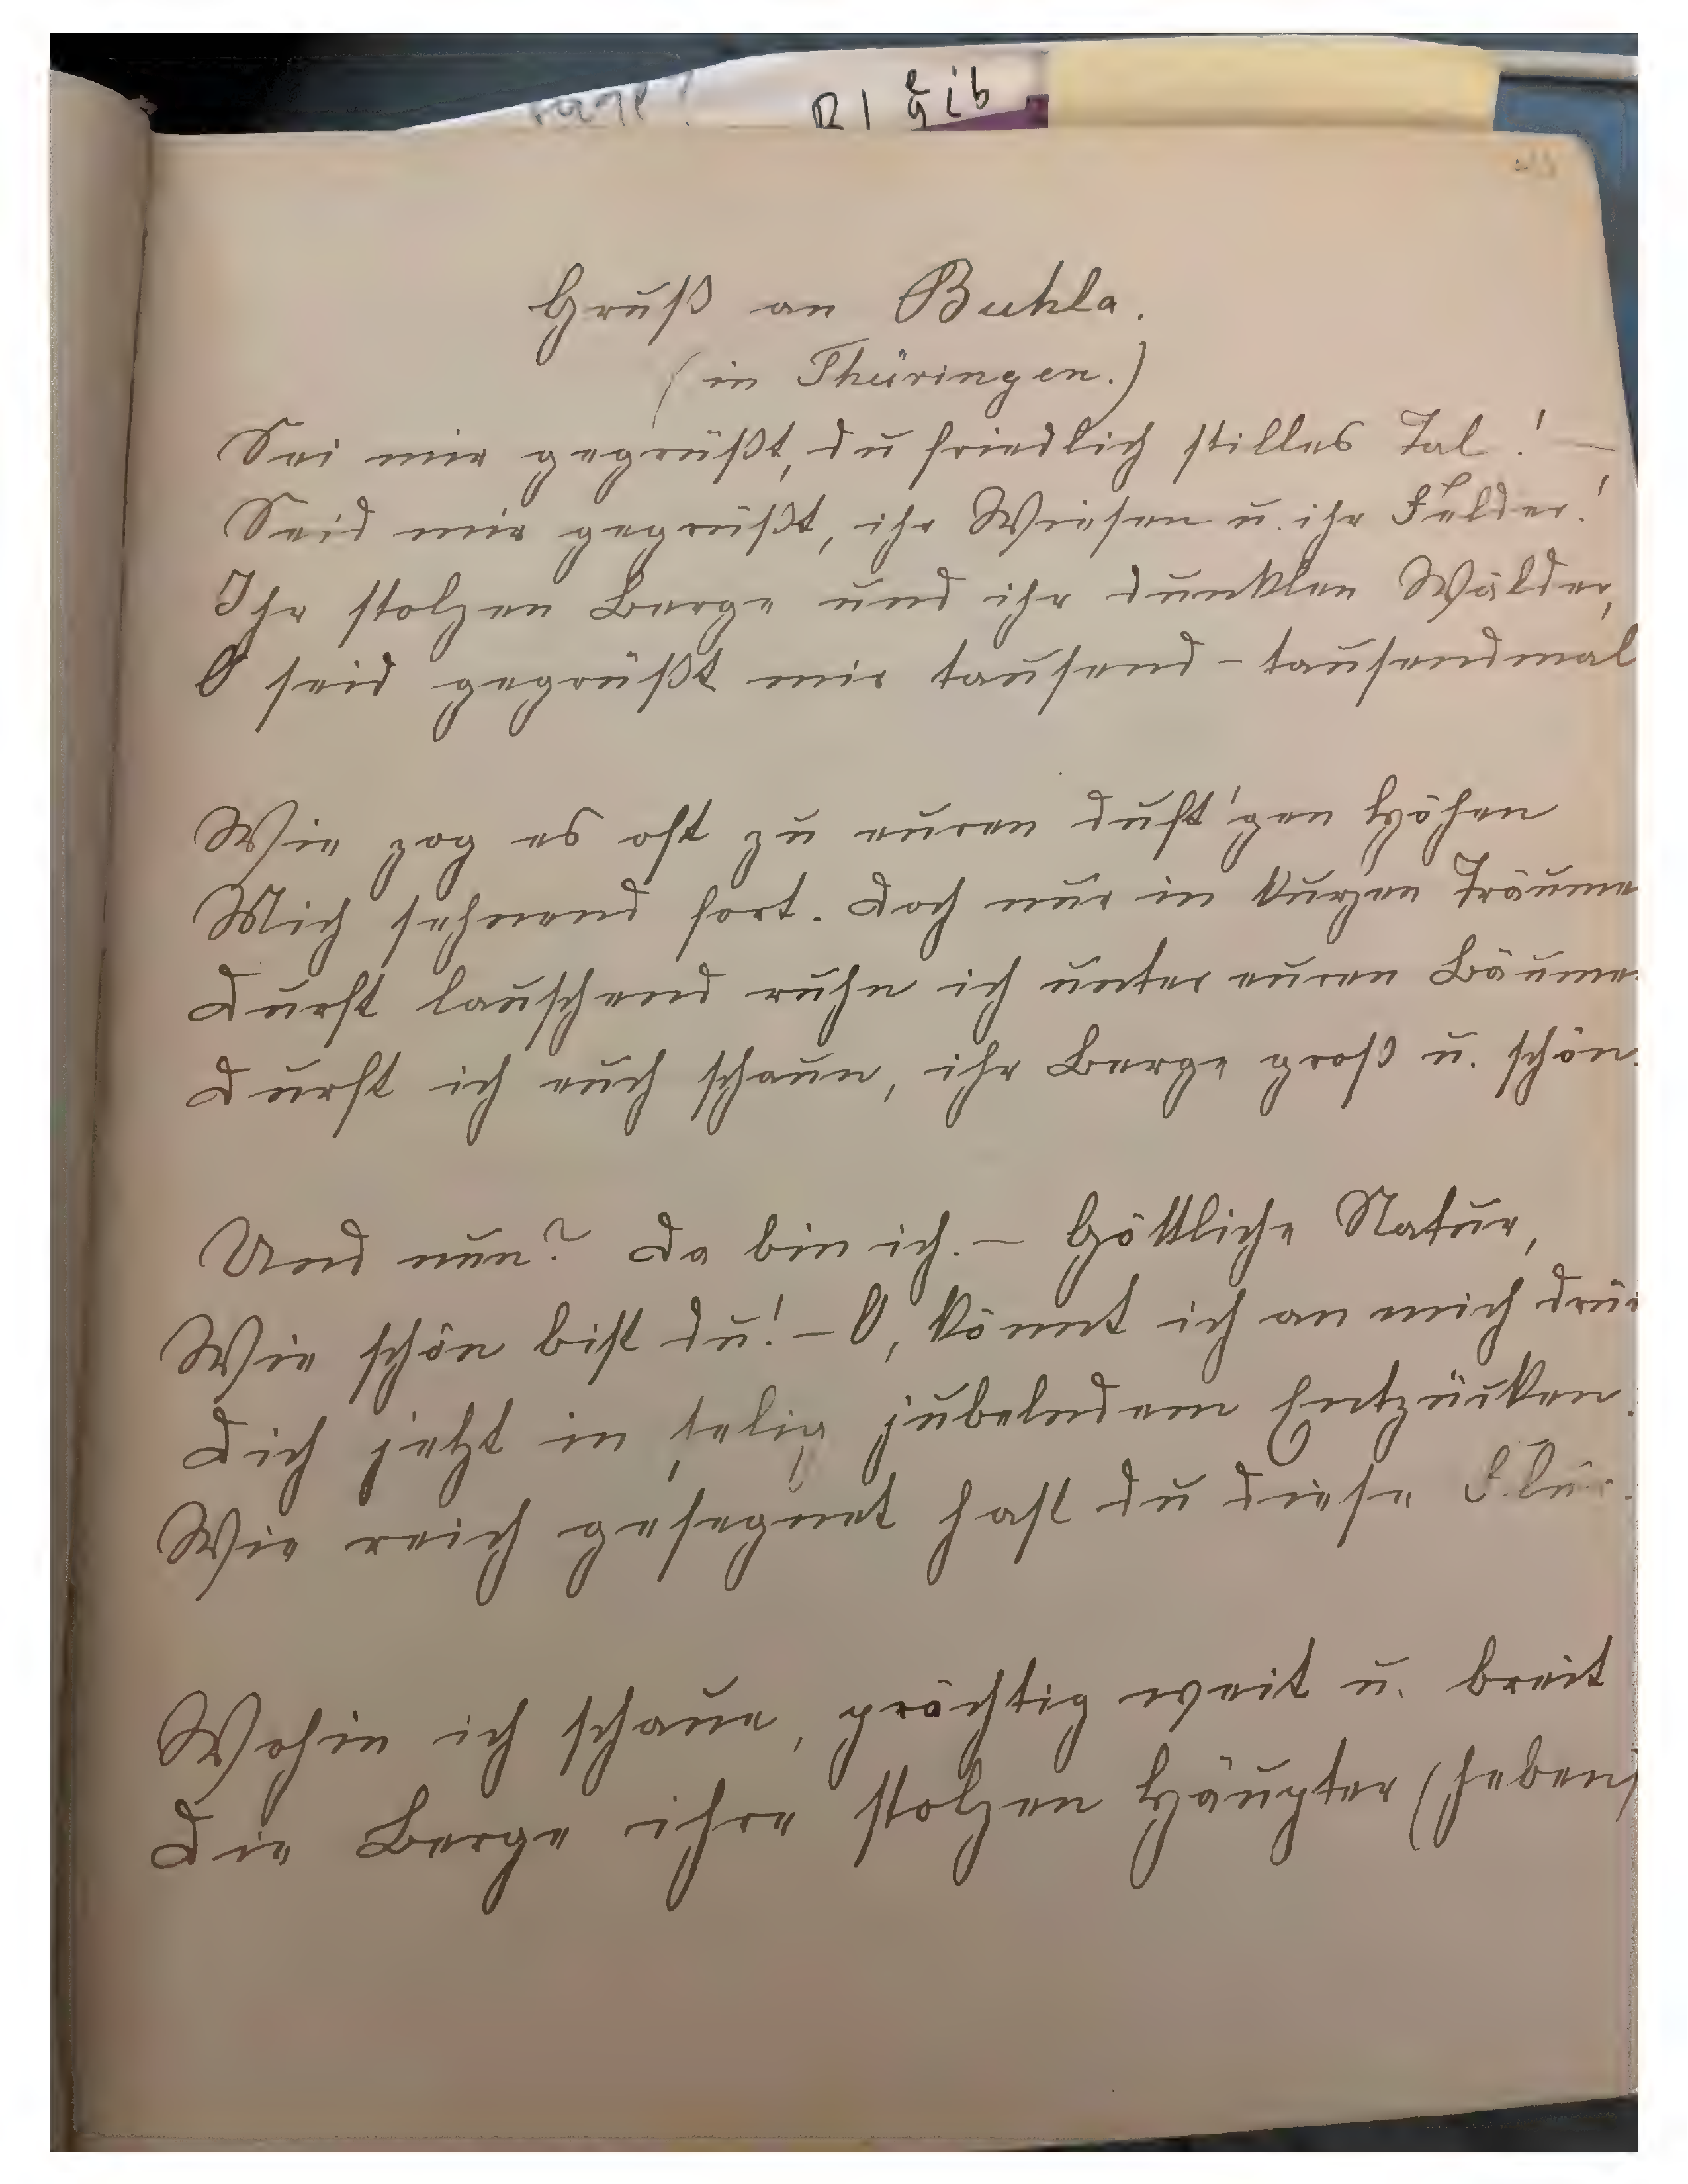 Gruß an Buhla.
(in Thüringen.)
Sei mir gegrüßt, du friedlich stilles Tal! –
Seid mir gegrüßt, ihr Wiesen u. ihr Felder!
Ihr stolzen Berge und ihr dunklen Wälder,
O seid gegrüßt mir tausend – tausendmal
Wie zog es oft zu euren duft'gen Höhen
Mich sehnend fort. Doch nur in kurzen Träume
Durft lauschend ruhn ich unter euren Bäume
Durft ich euch schaun, ihr Berge groß u. schön.
Und nun? Da bin ich. – Göttliche Natur,
Wie schön bist du! – O, könnt ich an mich drü
Dich jetzt in selig jubelndem Entzücken.
Wie reich gesegnet hast du diese Flur.
Wohin ich schaue, prächtig weit u. breit
Die Berge ihre stolzen Häupter (heben)